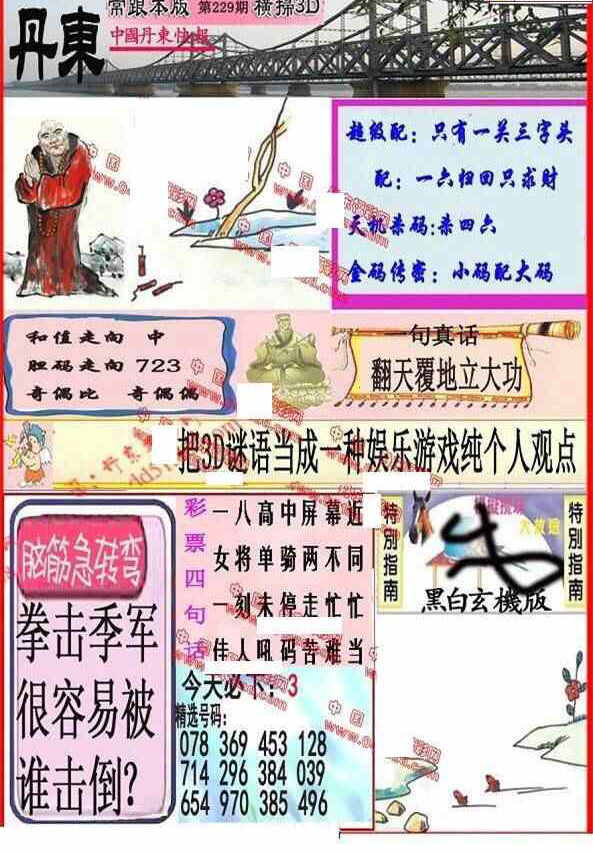 丹東
常跟本版 第229期 橫掃3D
中國丹東快報
超级配：只有一关三字头
配：一六归回只求财
天机杀码:杀四六
金码传密：小码配大码
和值走向 中
胆码走向 723
奇偶比 奇偶偶
一句真话
翻天覆地立大功
把3D谜语当成一种娱乐游戏纯个人观点
脑筋急转弯
拳击季军
很容易被
谁击倒?
彩票四句话
一八高中屏幕近
女将单骑两不同
一刻未停走忙忙
佳人吼码苦难当
今天必下：3
精选号码：
078 369 453 128
714 296 384 039
654 970 385 496
特別指南
特別指南
黑白玄機版